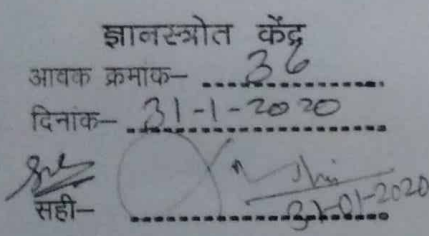 ज्ञानस्त्रोत केंद्र
आवक क्रमांक– 36
दिनांक– 31-1-2020
सही–
31-01-2020